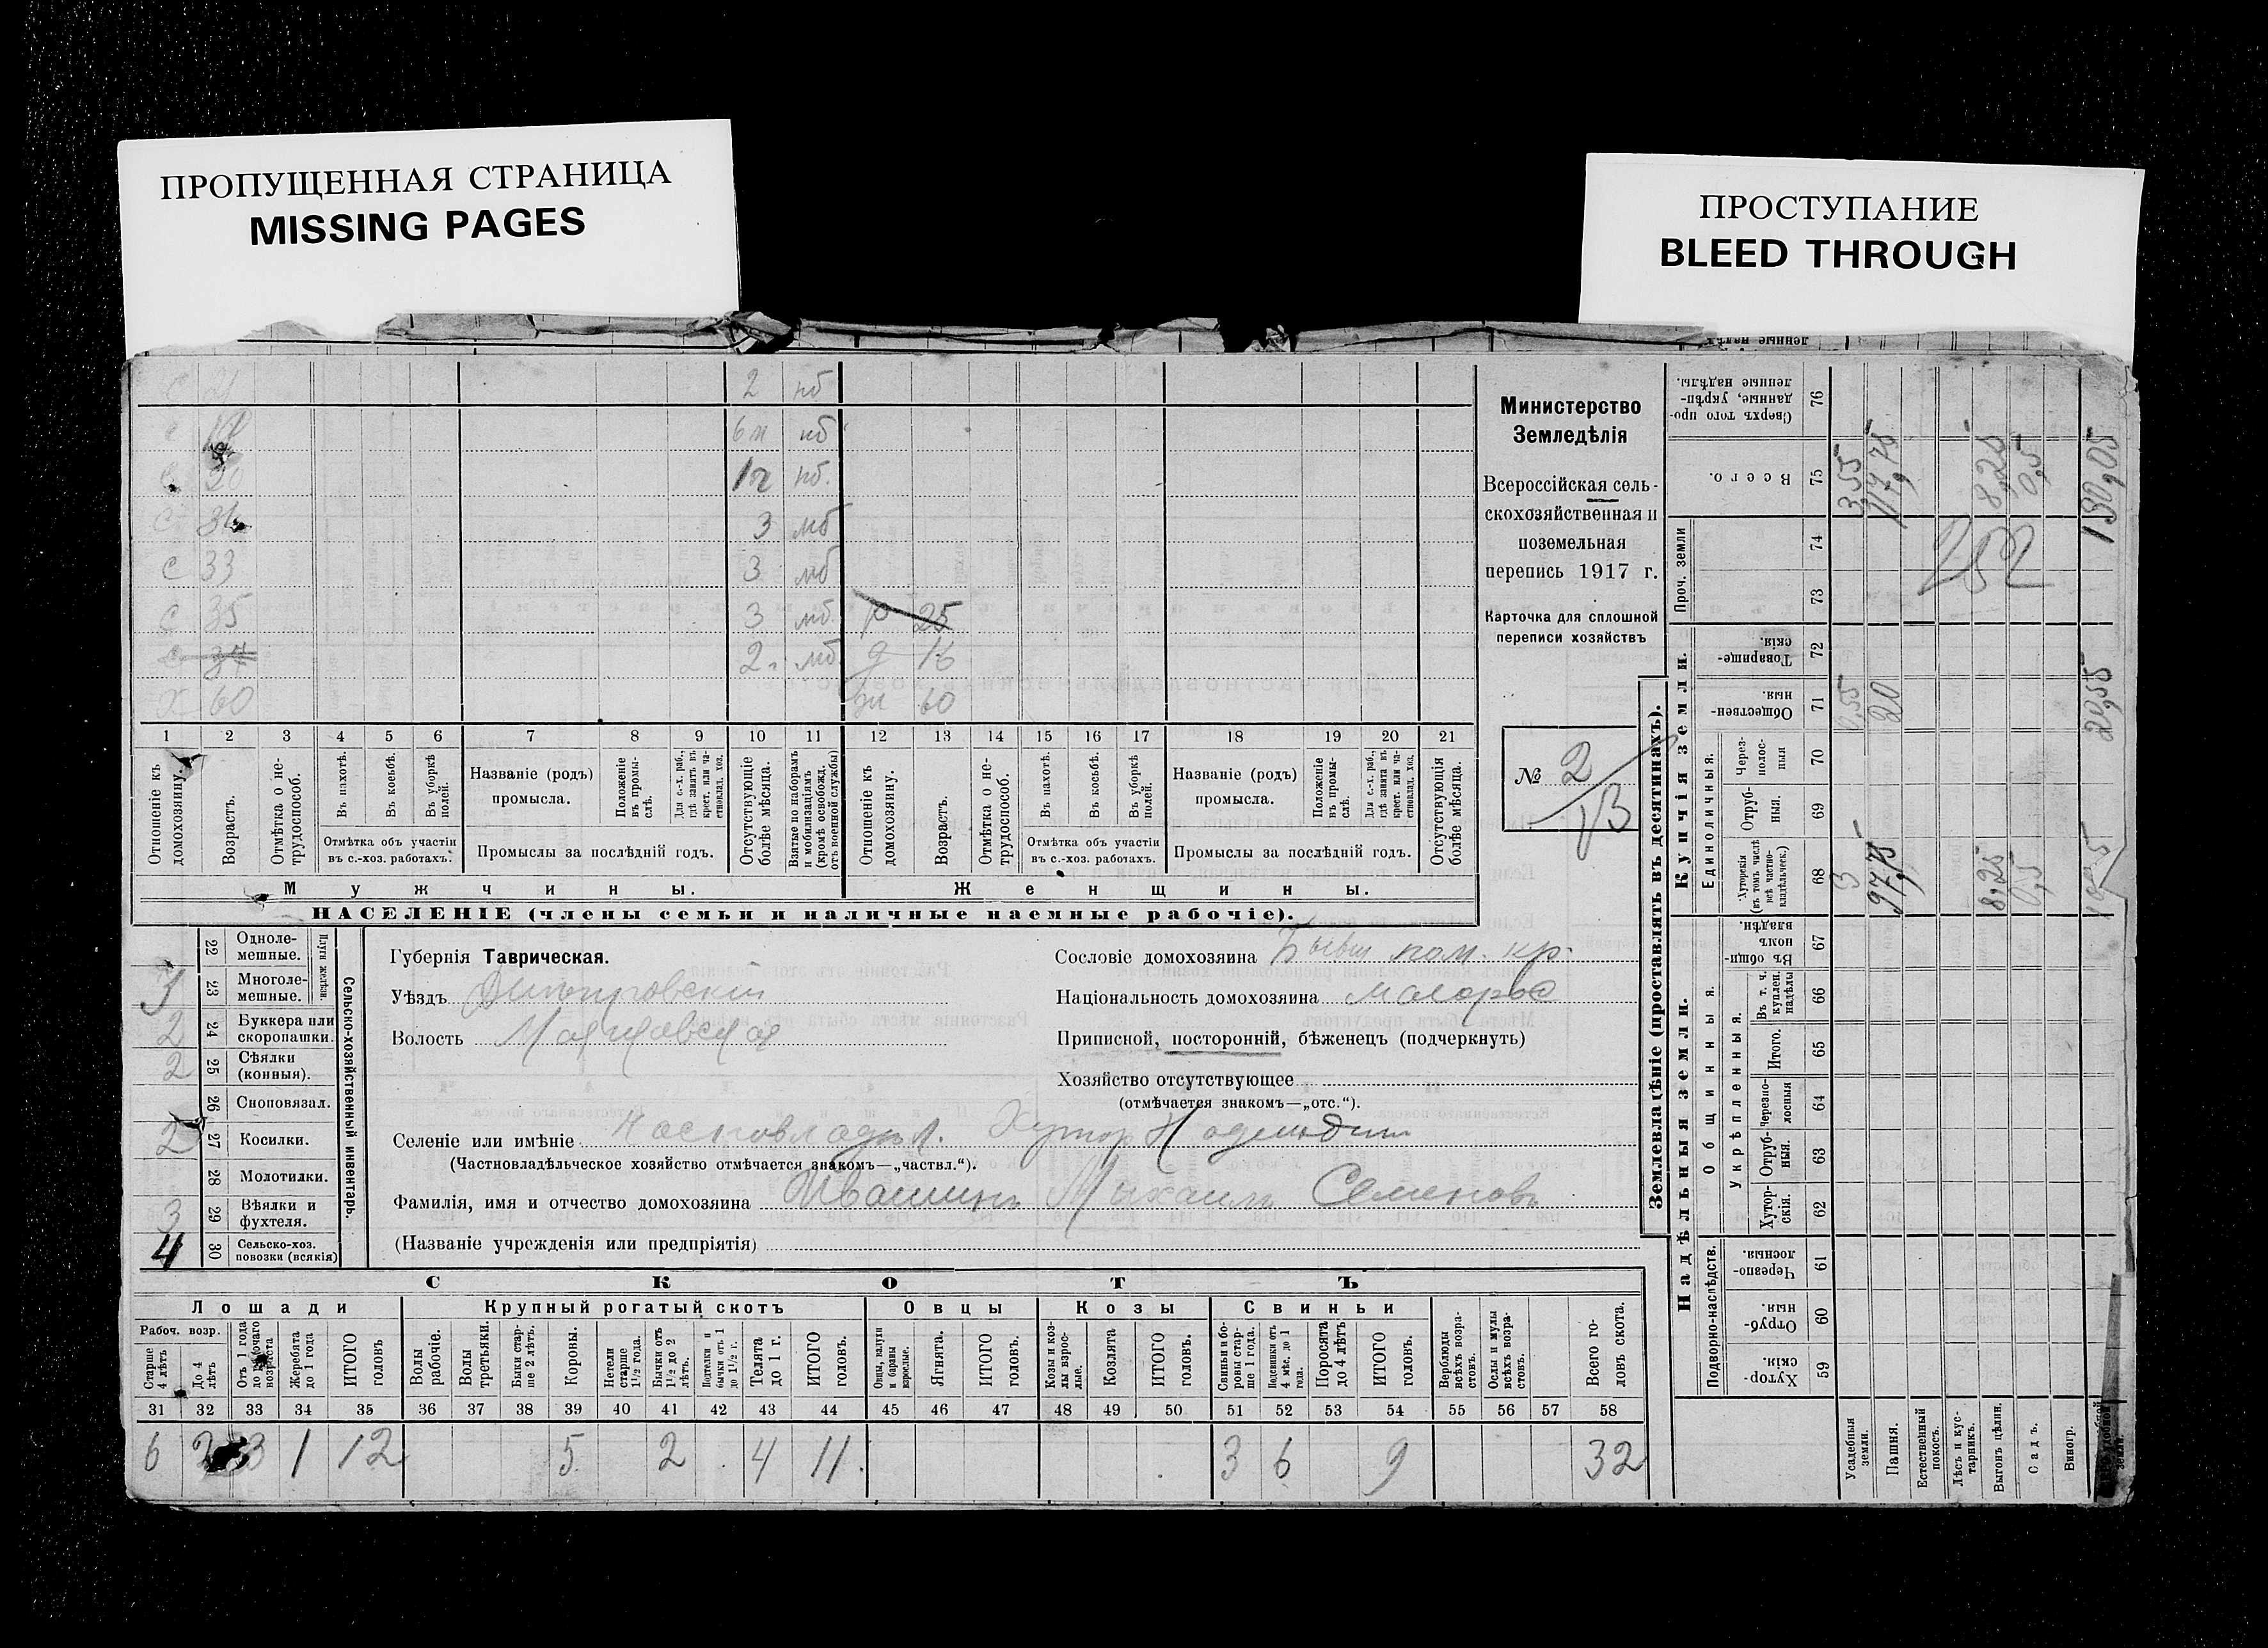 ПРОПУЩЕННАЯ СТРАНИЦА
MISSING PAGES
ПРОСТУПАНИЕ
BLEED THROUGH
2 нб
6м нб
30 1г нб.
с 3 мб
с 33 3 мб
с 35 3 мб р 25
2 мб д 16
х 60 60
1 2 3 4 5 6 7 8 9 10 11 12 13 14 15 16 17 18 19 20 21
Отношеніе къ домохозяину.
Возрастъ.
Отмѣтка о не-трудоспособ.
Въ пахотѣ.
Въ косьбѣ.
Въ уборкѣ полей.
Отмѣтка объ участіи
въ с.-хоз. работахъ.
Названіе (родъ)
промысла.
Положеніе въ промы-слѣ.
Для с.-х. раб., гдѣ занятъ въ крест. или ча-стновлад. хоз.
Промыслы за послѣдній годъ.
Отсутствующіе болѣе мѣсяца.
Взятые по наборамъ и мобилизаціямъ (кромѣ освобожд. отъ военной службы)
Отношеніе къ домохозяину.
Возрастъ.
Отмѣтка о не-трудоспособ.
Въ пахотѣ.
Въ косьбѣ.
Въ уборкѣ полей.
Отмѣтка объ участіи
въ с.-хоз. работахъ.
Названіе (родъ)
промысла.
Положеніе въ промы-слѣ.
Для с.-х. раб., гдѣ занята въ крест. или ча-стновлад. хоз.
Промыслы за послѣдній годъ.
Отсутствующія болѣе мѣсяца.
Мужчины. Женщины.
НАСЕЛЕНІЕ (члены семьи и наличные наемные рабочіе).
Министерство
Земледѣлія
Всероссійская сель-
скохозяйственная и
поземельная
перепись 1917 г.
Карточка для сплошной
переписи хозяйствъ
№ 2
13
22 Одноле-мешные.
3 23 Многоле-мешные.
Плуги желѣзн.
2 24 Буккера или скоропашки.
2 25 Сѣялки (конныя).
26 Сноповязал.
2 27 Косилки.
28 Молотилки.
3 29 Вѣялки и фухтеля.
4 30 Сельско-хоз. повозки (всякія)
Сельско-хозяйственный инвентарь.
Губернія Таврическая.
Уѣздъ Днепровскій
Волость
Сословіе домохозяина Бывш пом. кр.
Національность домохозяина малорос
Приписной, посторонній, бѣженецъ (подчеркнуть)
Хозяйство отсутствующее
(отмѣчается знакомъ—„отс.“).
Селеніе или имѣніе Частновладѣл. Хутор
(Частновладѣльческое хозяйство отмѣчается знакомъ—„частвл.“).
Фамилія, имя и отчество домохозяина Ивашинъ Михаилъ Семеновъ
(Названіе учрежденія или предпріятія)
СКОТЪ
Лошади Крупный рогатый скотъ Овцы Козы Свиньи
Рабоч. возр.
Старше 4 лѣтъ
До 4 лѣтъ
Отъ 1 года до рабочаго возраста
Жеребята до 1 года
ИТОГО головъ
Волы рабочіе.
Волы третьяки.
Быки стар-ше 2 лѣтъ.
Коровы.
Нетели старше 1½ года.
Бычки отъ 1½ до 2 лѣтъ.
Подтелки и бычки отъ 1 до 1½ г.
Телята до 1 г.
ИТОГО головъ.
Овцы, валухи и бараны взрослые.
Ягнята.
ИТОГО головъ.
Козы и коз-лы взрос-лые.
Козлята
ИТОГО головъ.
Свиньи и бо-ровы стар-ше 1 года.
Подсвинки отъ 4 мѣс. до 1 года.
Поросята до 4 лѣтъ
ИТОГО головъ.
Верблюды всѣхъ возра-стовъ.
Ослы и мулы всѣхъ возра-стовъ.
Всего го-ловъ скота.
31 32 33 34 35 36 37 38 39 40 41 42 43 44 45 46 47 48 49 50 51 52 53 54 55 56 57 58
6 2 3 1 12 5 2 4 11 3 6 9 32
Землевладѣніе (проставлять въ десятинахъ).
Надѣльныя земли.
Купчія земли.
Проч. земли
Подворно-наслѣдств.
Общинныя.
Укрѣпленныя.
Единоличныя.
Сверхъ того про-данные, укрѣп-ленные надѣлы. 76
Всего. 75 3,55 117,75 8,25 0,5 130,05
74
73
252
Товарище-скія. 72
Обществен-ныя. 71 0,55 20 20,55
Через-полос-ныя 70
Отруб-ныя. 69
Хуторскія (въ томъ числѣ всѣ частно-владѣльческ.) 68 3 97,75 8,25 0,5
Въ общи-номъ владѣн. 67
Въ т. ч. куплен. надѣлы 66
Итого. 65
Черезпо-лосныя 64
Отруб-ныя. 63
Хутор-скія. 62
Черезпо-лосныя. 61
Отруб-ныя. 60
Хутор-скія. 59
Усадебныя земли.
Пашня.
Естественный покосъ.
Лѣсъ и кус-тарникъ.
Выгонъ цѣлин.
Садъ.
Виногр.